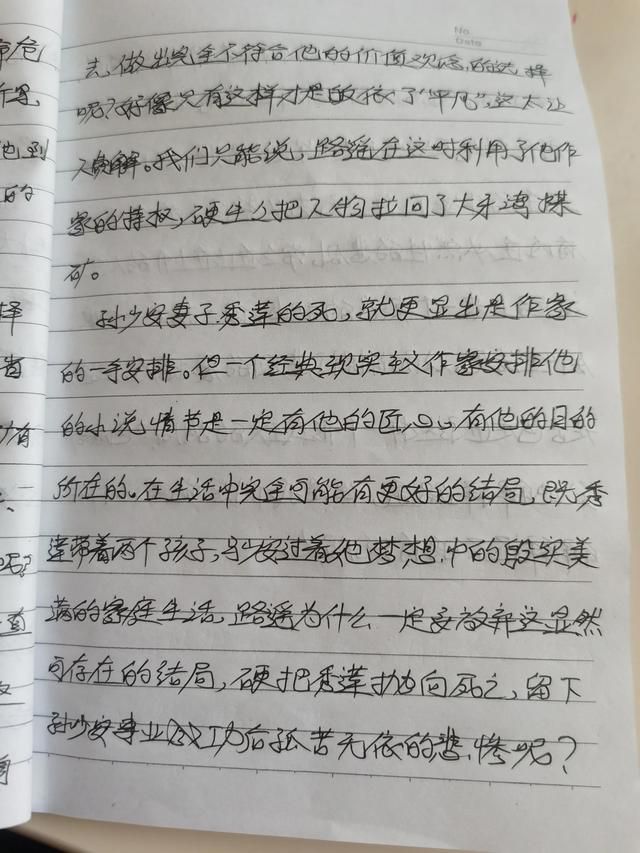 No.
Date
去,做出完全不符合他的价值观念的选择
呢?好像只有这样才是的依了“平凡”,这太让
人费解。我们只能说,路遥在这时利用了他作
家的特权,硬生生把人物拉回了大牙湾煤
矿。
孙少安妻子秀莲的死,就更显出是作家
的一手安排。但一个经典现实主义作家安排他
的小说情节是一定有他的匠心,有他的目的
所在的。在生活中完全可能有更好的结局,既秀
莲带着两个孩子,与少安过着他梦想中的殷实美
满的家庭生活,路遥为什么一定要放弃这显然
可存在的结局,硬把秀莲抛向死亡,留下
孙少安事业成功后孤苦无依的悲惨呢?
他到
的
择
省
有
呢?